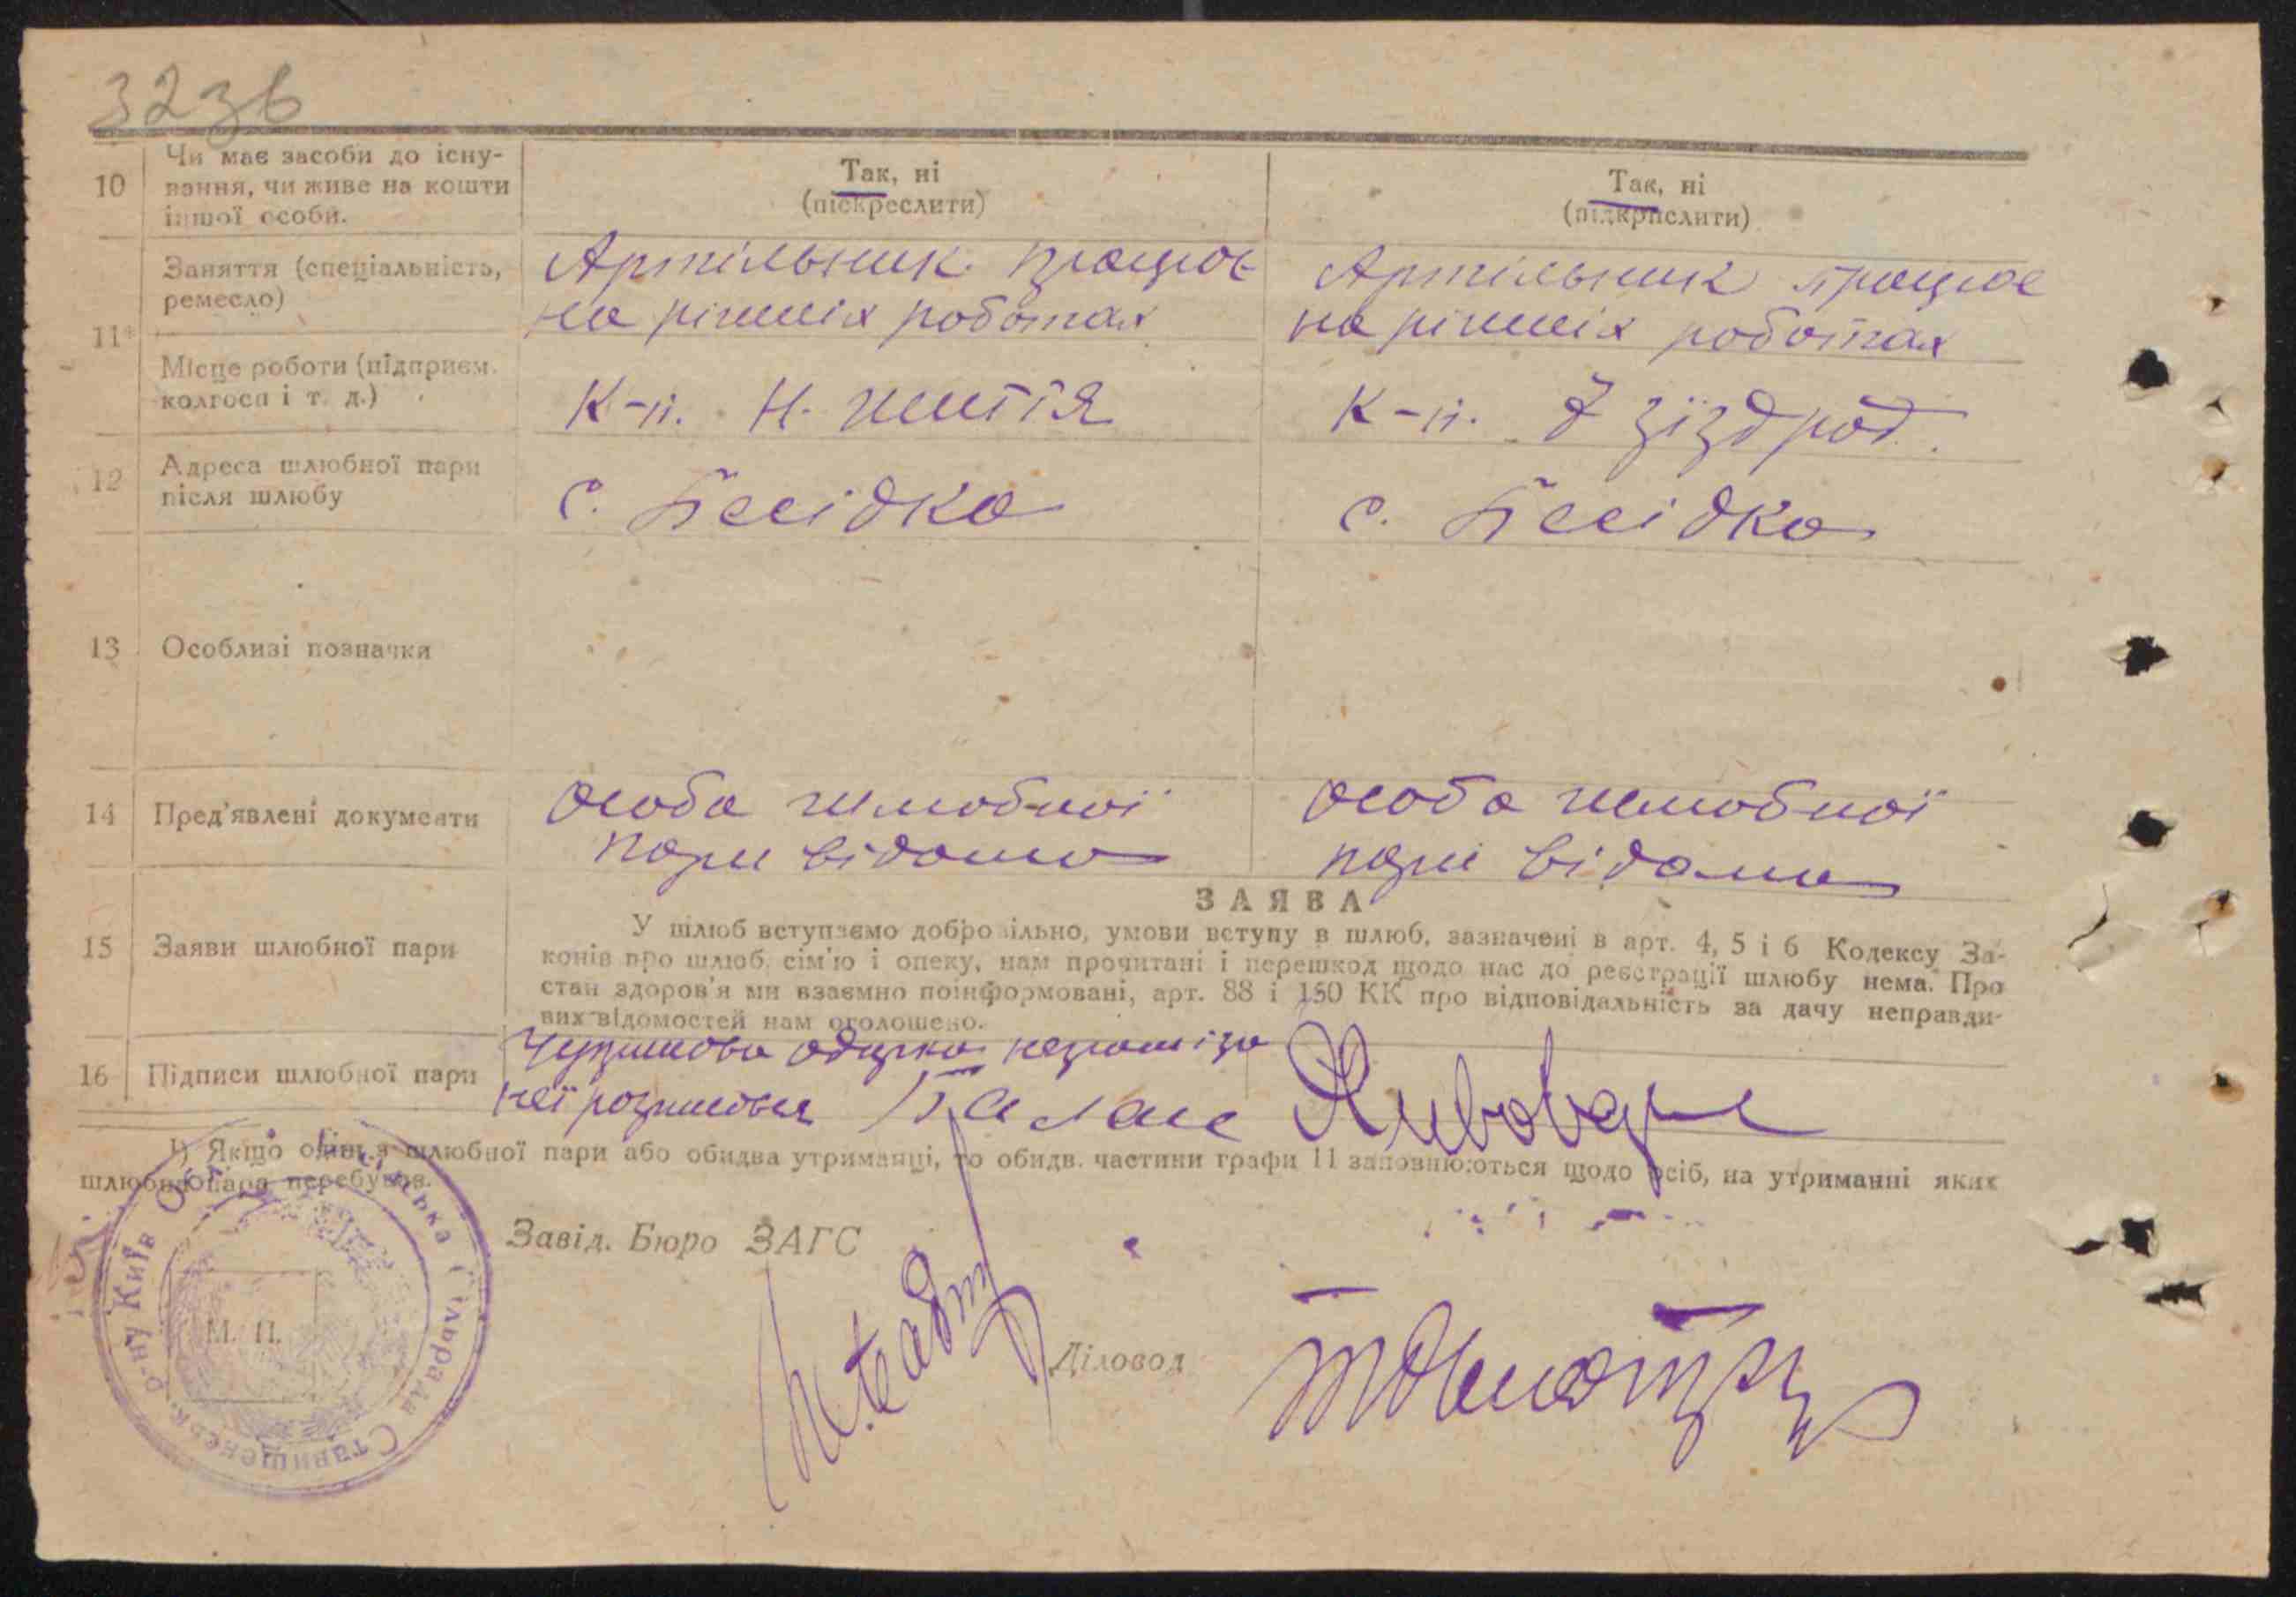 323б
10
Чи має засоби до існу-
вання, чи живе на кошти
іншої особи.
Так, ні
(піскреслити)
Так, ні
(підкрислити)
11*
Заняття (спеціальність,
ремесло)
Артільник працює
на різних роботах
Артільник працює
на різних роботах
Місце роботи (підприєм.
колгосп і т. д.)
К-п. Н. життя
К-п. 7 зїзд рад.
12
Адреса шлюбної пари
після шлюбу
с. Бесідка
с. Бесідка
13
Особливі позначки
14
Пред'явлені документи
Особа шлюбної
пари відома
Особа шлюбної
пари відома
15
Заяви шлюбної пари
ЗАЯВА
У шлюб вступаємо добровільно, умови вступу в шлюб, зазначені в арт. 4, 5 і 6 Кодексу За-
конів про шлюб, сім'ю і опеку, нам прочитані і перешкод щодо нас до реєстрації шлюбу нема. Про
стан здоров'я ми взаємно поінформовані, арт. 88 і 150 КК про відповідальність за дачу неправди-
вих відомостей нам оголошено.
16
Підписи шлюбної пари
неї
1) Якщо один з шлюбної пари або обидва утриманці, то обидв. частини графи 11 заповнюються щодо осіб, на утриманні яких
шлюбна пара перебуває.
Завід. Бюро ЗАГС
М. П.
Діловод
сільська Сільрада Ставищенськ. р-ну Київ Обл